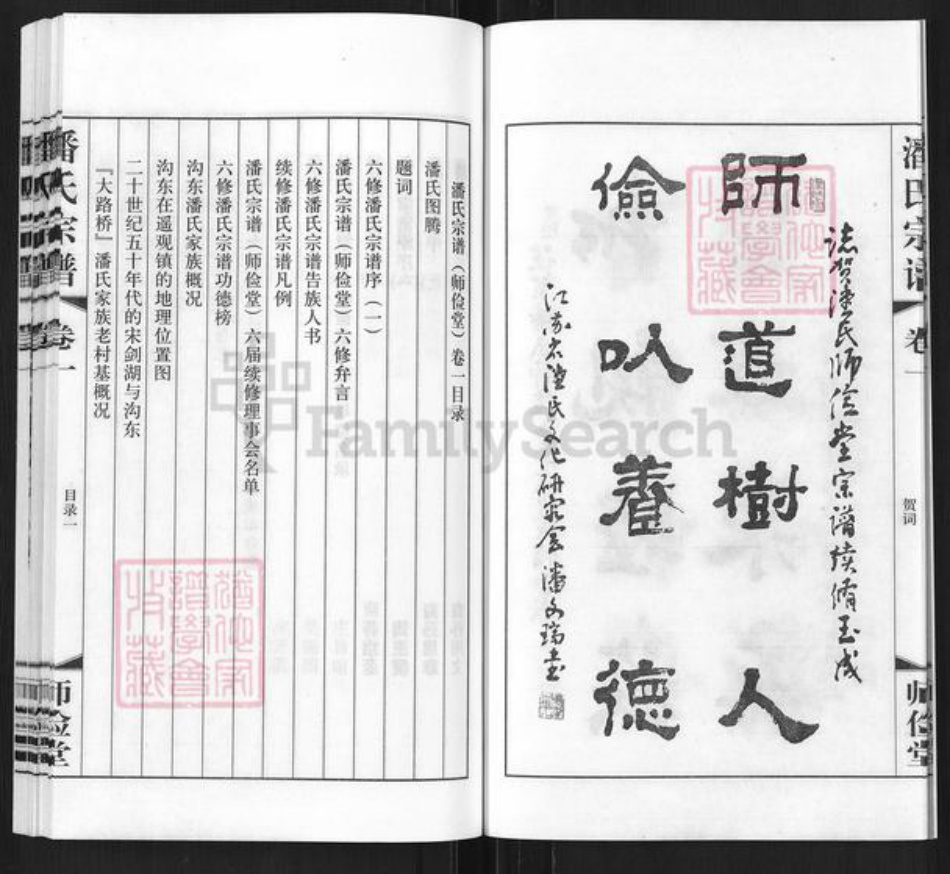 潘氏宗谱
卷一
贺词
师俭堂
志贺潘氏师俭堂宗谱续修玉成
師道樹人
儉以養德
江苏省潘氏文化研究会 潘文瑞书
潘氏宗谱（师俭堂）卷一目录
潘氏图腾
题词
六修潘氏宗谱序（一）
潘氏宗谱（师俭堂）六修弁言
六修潘氏宗谱告族人书
续修潘氏宗谱凡例
潘氏宗谱（师俭堂）六届续修理事会名单
六修潘氏宗谱功德榜
沟东潘氏家族概况
沟东在遥观镇的地理位置图
二十世纪五十年代的宋剑湖与沟东
『大路桥』潘氏家族老村基概况
潘氏宗谱
卷一
目录一
师俭堂
FamilySearch